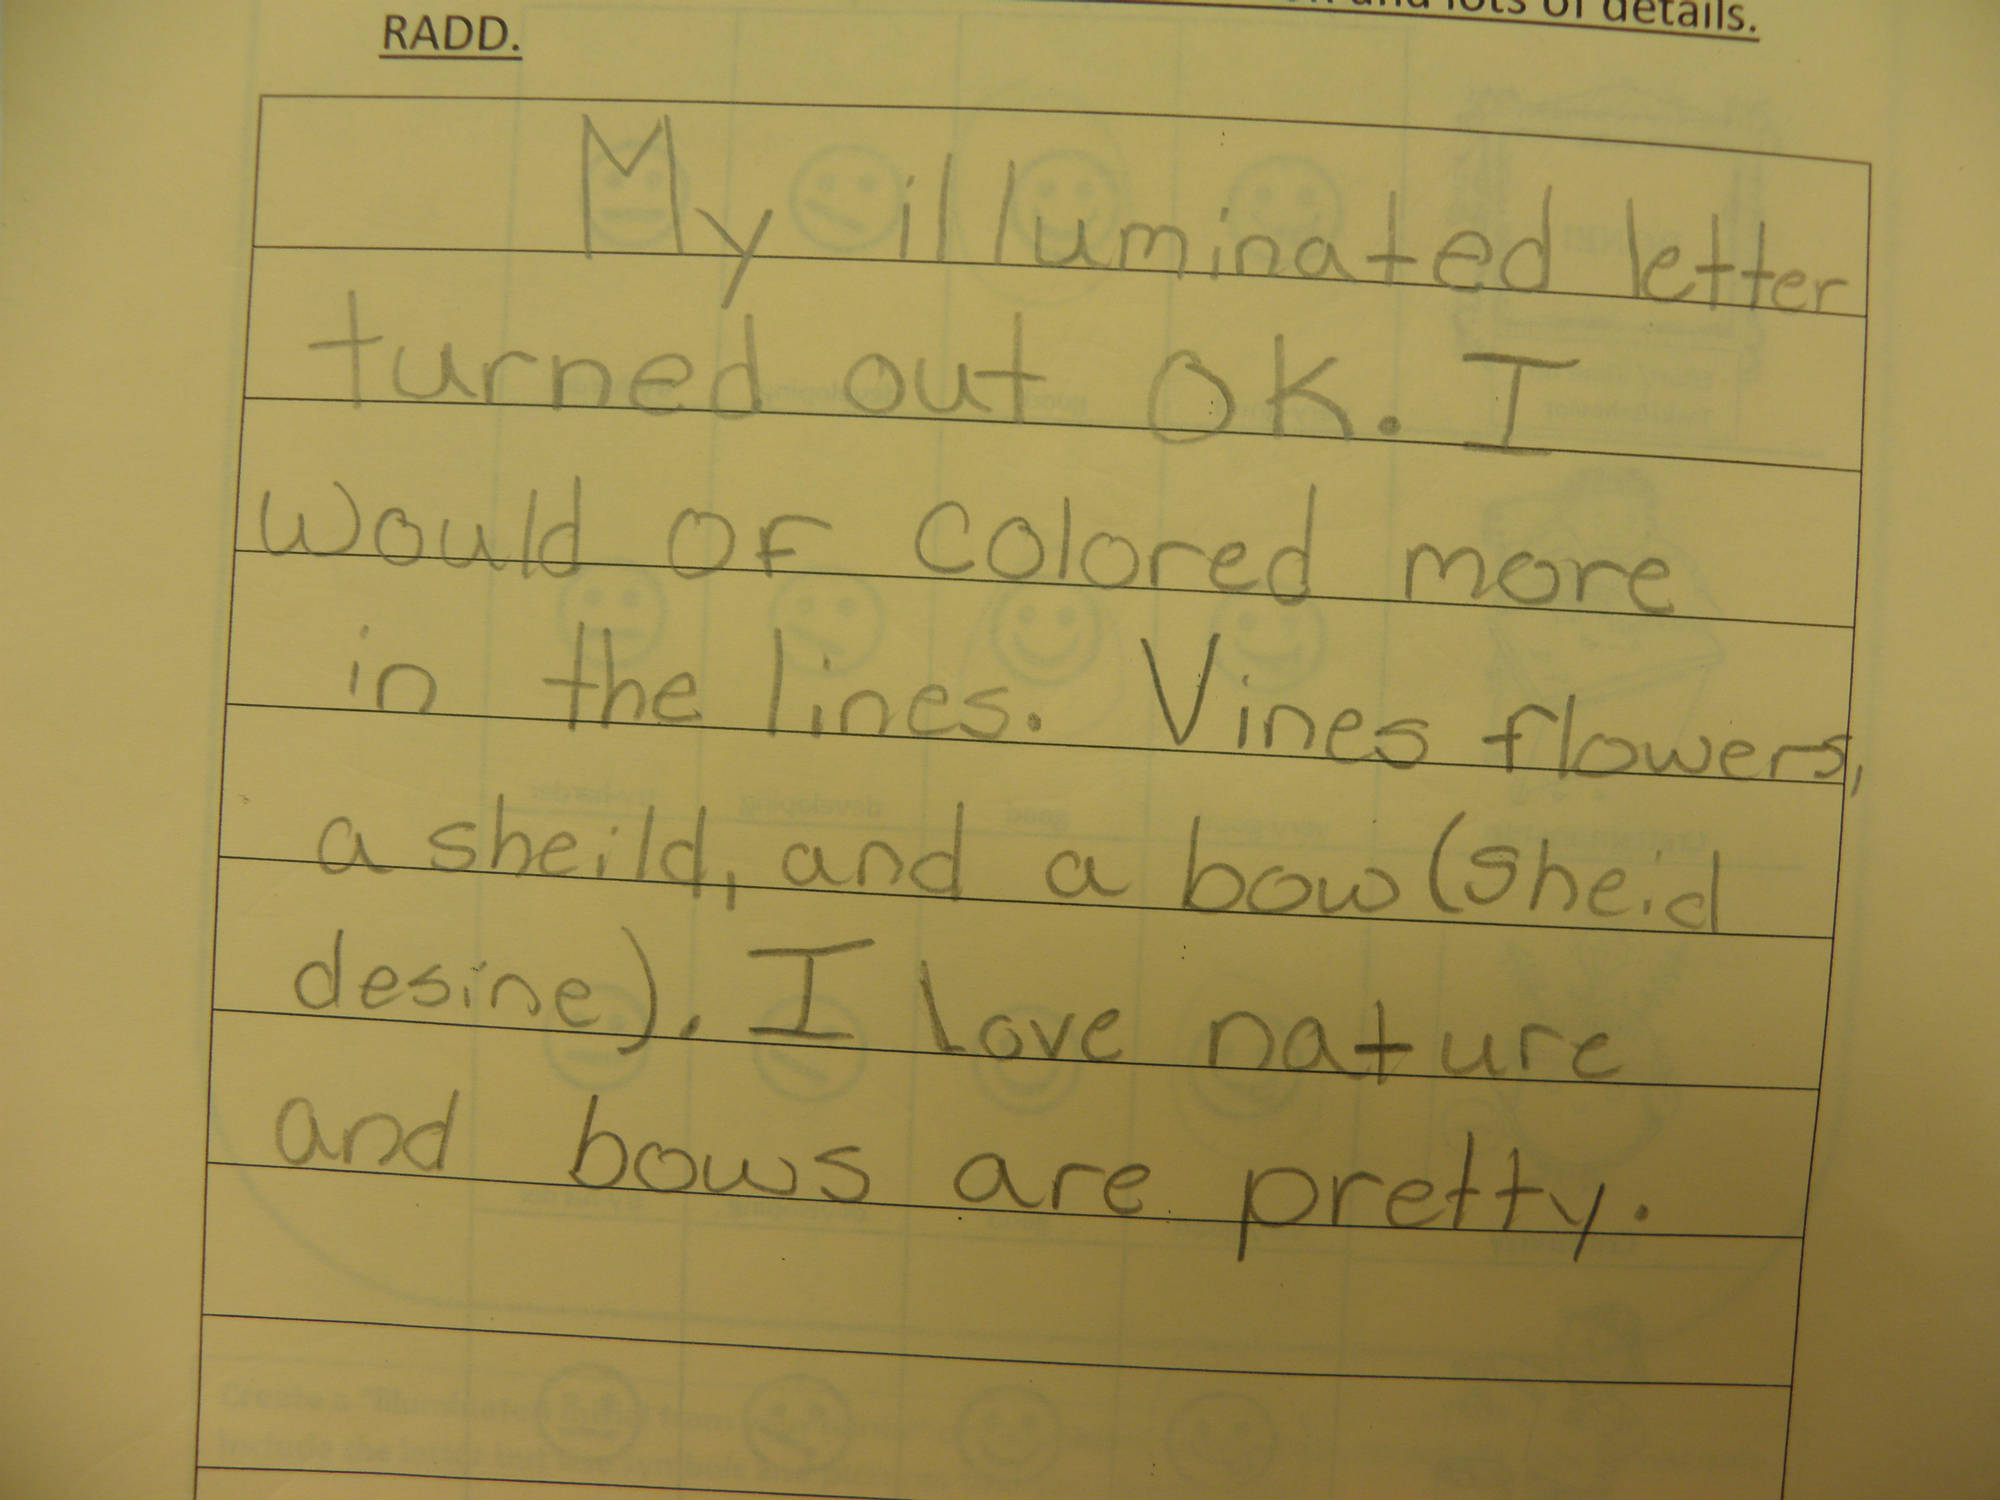 and lots of details.
RADD.
My illuminated letter
turned out OK. I
would of colored more
in the lines. Vines flowers,
a sheild, and a bow (sheid
desine). I Love nature
and bows are pretty.